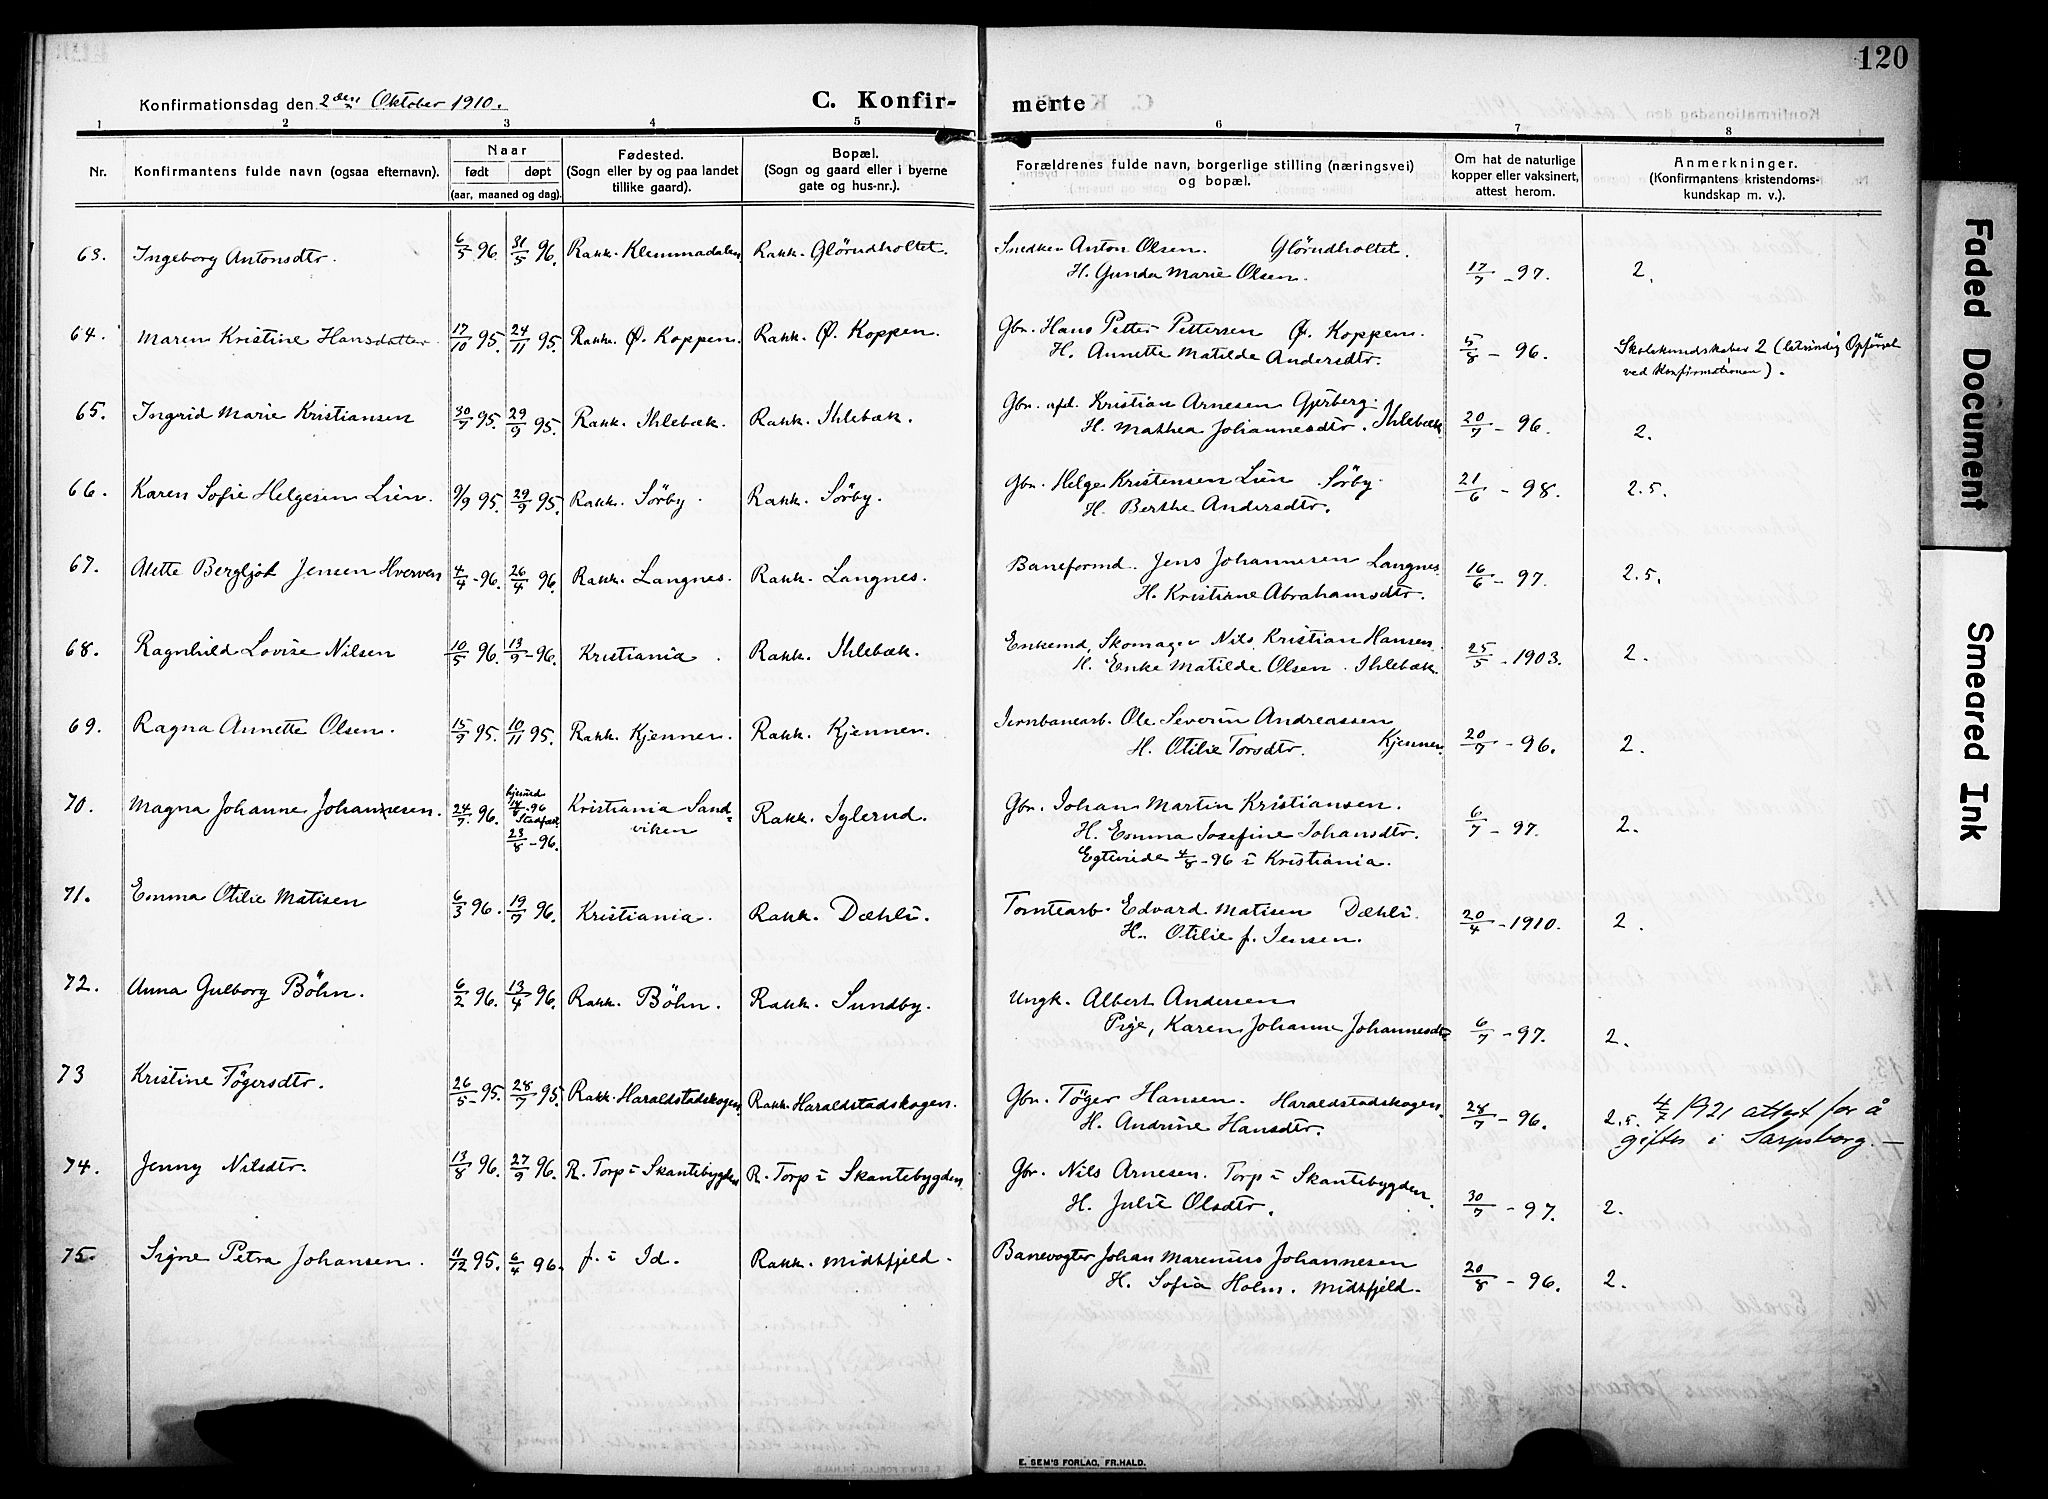 120
Konfirmationsdag den 2den Oktober 1910.
C. Konfir- merte
1 2 3 4 5 6 7 8
Nr.
Konfirmantens fulde navn (ogsaa efternavn).
Naar
født døpt
(aar, maaned og dag).
Fødested.
(Sogn eller by og paa landet
tillike gaard).
Bopæl.
(Sogn og gaard eller i byerne
gate og hus-nr.).
Forældrenes fulde navn, borgerlige stilling (næringsvei)
og bopæl.
Om hat de naturlige
kopper eller vaksinert,
attest herom.
Anmerkninger.
(Konfirmantens kristendoms-
kundskap m. v.).
63. Ingeborg Antonsdtr. 6/5 96. 31/5 96. Rakk. Klemmadalen Rakk. Glörudholtet. Snedker Anton Olsen. Glörudholtet.
H. Gunda Marie Olsen. 17/7 - 97. 2.
64. Maren Kristine Hansdatter 17/10 95. 24/11 95. Rakk. Ø. Koppen. Rakk. Ø. Koppen. Gbr. Hans Petter Pettersen Ø. Koppen.
H. Annette Matilde Andersdtr. 5/8 - 96. Skolekundskaber 2 (letsindig Opførsel
ved Konfirmationen).
65. Ingrid Marie Kristiansen 30/7 95. 29/9 95. Rakk. Ihlebæk. Rakk. Ihlebæk. Gbr. afd. Kristian Arnesen Gjerberg.
H. Mathea Johannesdtr. Ihlebæk 20/7 - 96. 2.
66. Karen Sofie Helgesen Lien. 9/9 95. 29/9 95. Rakk. Sörby. Rakk. Sörby. Gbr. Helge Kristensen Lien Sörby.
H. Berthe Andersdtr. 21/6 - 98. 2.5.
67. Alette Bergljot Jensen Hverven 4/4 - 96. 26/4 96. Rakk. Langnes. Rakk. Langnes. Baneformd. Jens Johannesen Langnes.
H. Kristiane Abrahamsdtr. 16/6 - 97. 2.5.
68. Ragnhild Lovise Nilsen 10/5 96. 13/9 - 96. Kristiania. Rakk. Ihlebæk. Enkemd, Skomager Nils Kristian Hansen.
H. Enke Matilde Olsen. Ihlebæk. 25/5 - 1903. 2.
69. Ragna Annette Olsen. 15/9 95. 10/11 95. Rakk. Kjennen. Rakk. Kjennen. Jernbanearb. Ole Severin Andreassen
H. Otilie Torsdtr. Kjennen. 20/7 - 96. 2.
70. Magna Johanne Johannesen. 24/7 96. hjemd
14/8 - 96
Stadfæst
23/8 - 96. Kristiania - Sand-
viken Rakk. Iglerud. Gbr. Johan Martin Kristiansen.
H. Emma Josefine Johansdtr.
Egtviede 4/8 - 96 i Kristiania. 6/7 - 97. 2.
71. Emma Otilie Matisen 6/3 96. 19/7 96. Kristiania. Rakk. Dæhli. Tomtearb. Edvard Matisen Dæhli.
H. Otilie f. Jensen. 20/4 - 1910. 2.
72. Anna Gulborg Böhn. 6/2 96. 13/4 96. Rakk. Böhn. Rakk. Sundby. Ungk. Albert Andersen
Pige, Karen Johanne Johannesdtr 6/7 - 97. 2.
73 Kristine Tögersdtr. 26/5 - 95. 28/7 95. Rakk. Haraldstadskogen Rakk. Haraldstadskogen. Gbr. Töger Hansen. Haraldstadskogen.
H. Andrine Hansdtr. 28/7 - 96. 2.5. 4/7 1921 attest for å
giftes i Sarpsborg. -
74. Jenny Nilsdtr. 13/8 96. 27/9 96. R. Torp i Skantebygden R. Torp i Skantebygden Gbr. Nils Arnesen. Torp i Skantebygden.
H. Julie Olsdtr. 30/7 - 97. 2.
75. Signe Petra Johansen. 11/12 95. 6/4 96. f. i Id. Rakk. Midtfjeld. Banevogter Johan Marenius Johannesen
H. Sofia Holm. Midtfjeld. 20/8 - 96. 2.
E. SEM'S FORLAG, FR.HALD.
Faded Document
Smeared Ink